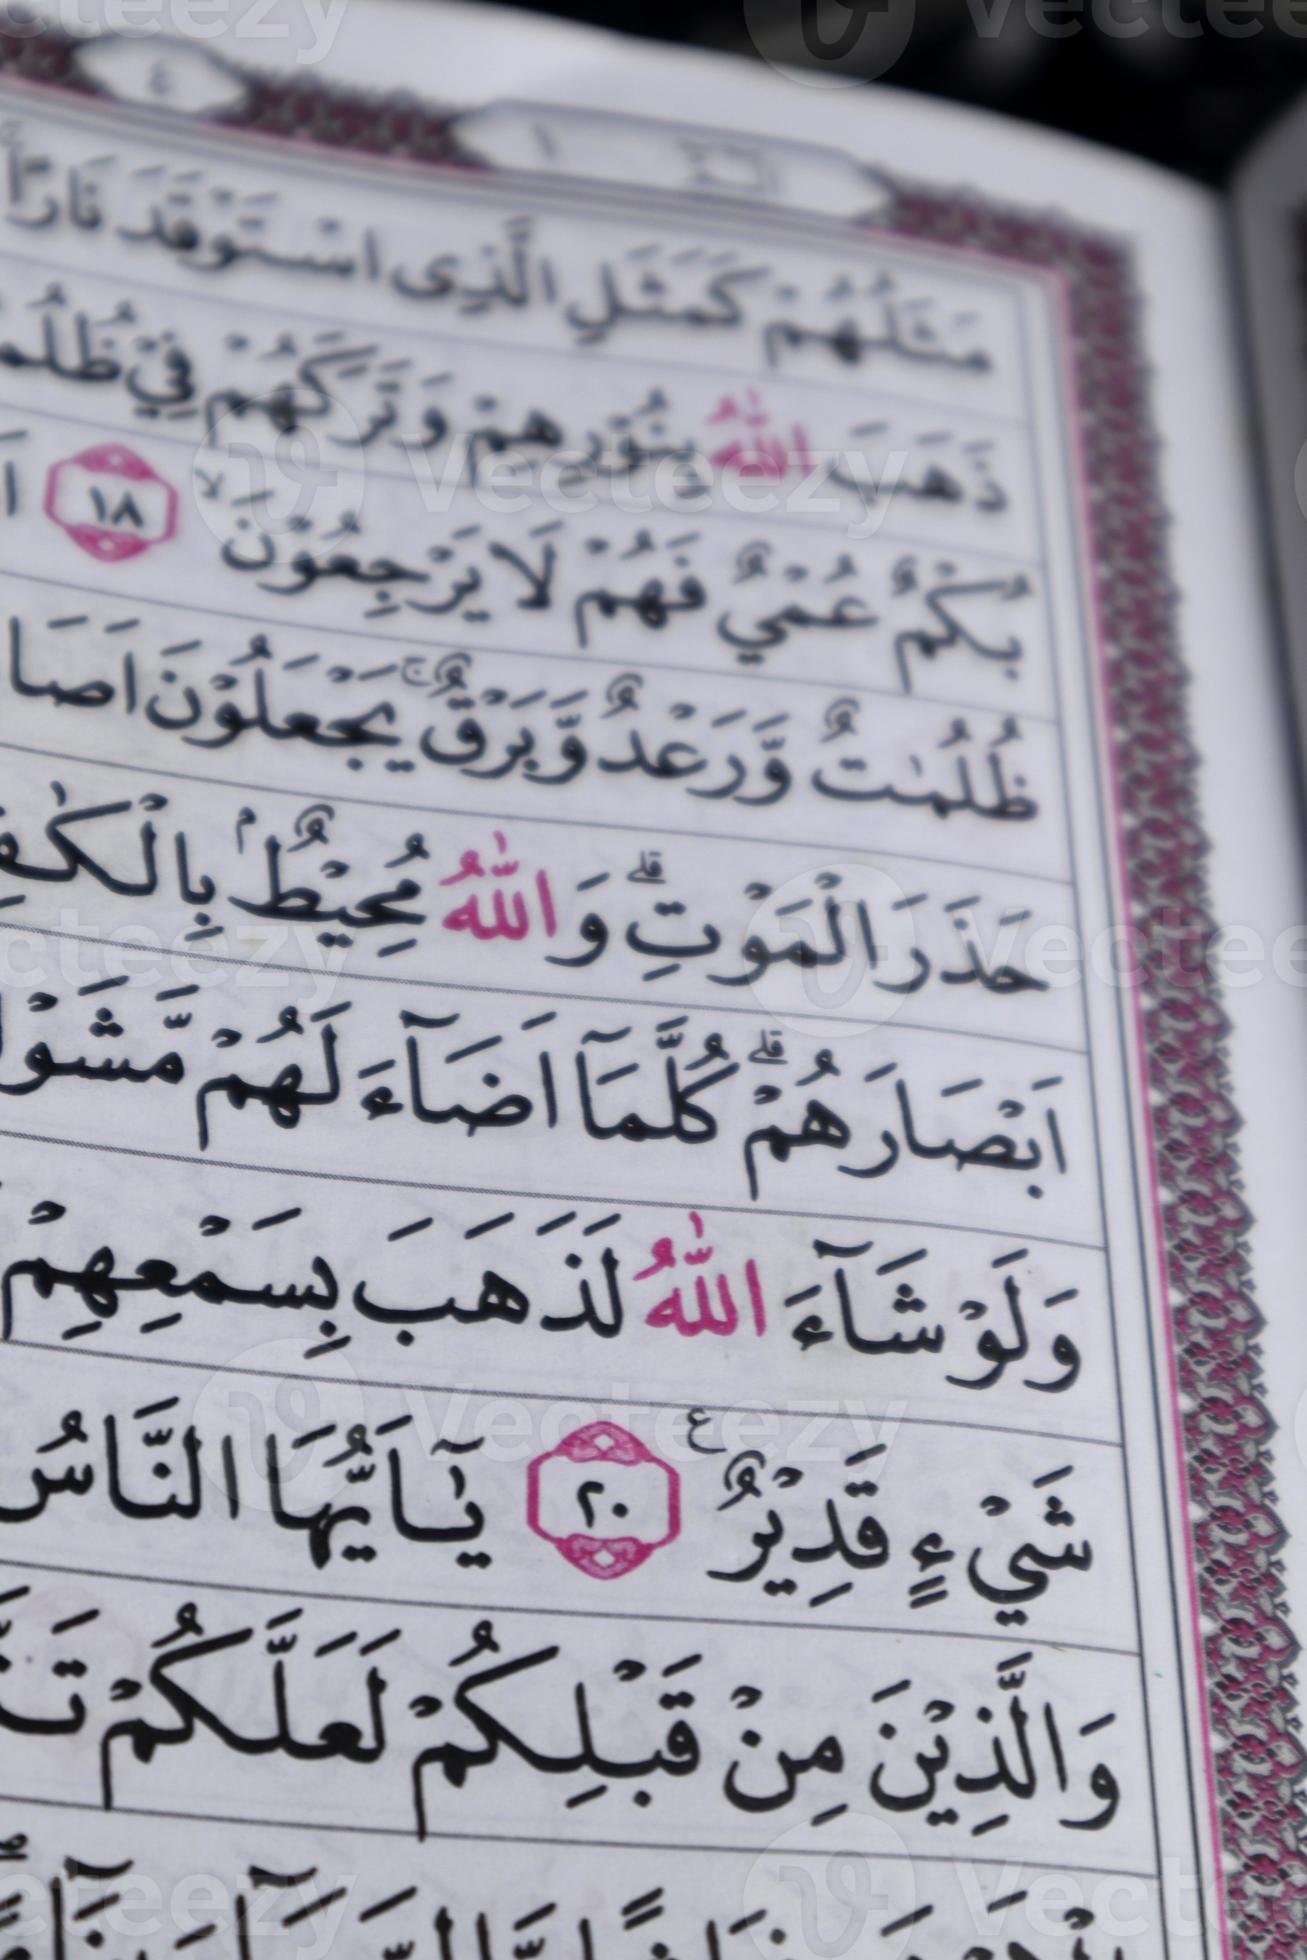 ٤ ١
مَثَلُهُمْ كَمَثَلِ الَّذِى اسْتَوْقَدَ نَارًا
ذَهَبَ اللّٰهُ بِنُوْرِهِمْ وَتَرَكَهُمْ فِيْ ظُلُم
بُكْمٌ عُمْيٌ فَهُمْ لَا يَرْجِعُوْنَۙ ١٨ اَ
ظُلُمٰتٌ وَّرَعْدٌ وَّبَرْقٌۚ يَجْعَلُوْنَ اَصَا
حَذَرَ الْمَوْتِۗ وَاللّٰهُ مُحِيْطٌۢ بِالْكٰفِ
اَبْصَارَهُمْۗ كُلَّمَآ اَضَاۤءَ لَهُمْ مَّشَوْا
وَلَوْ شَاۤءَ اللّٰهُ لَذَهَبَ بِسَمْعِهِمْ
شَيْءٍ قَدِيْرٌ ع ٢٠ يٰٓاَيُّهَا النَّاسُ
وَالَّذِيْنَ مِنْ قَبْلِكُمْ لَعَلَّكُمْ تَتَّ